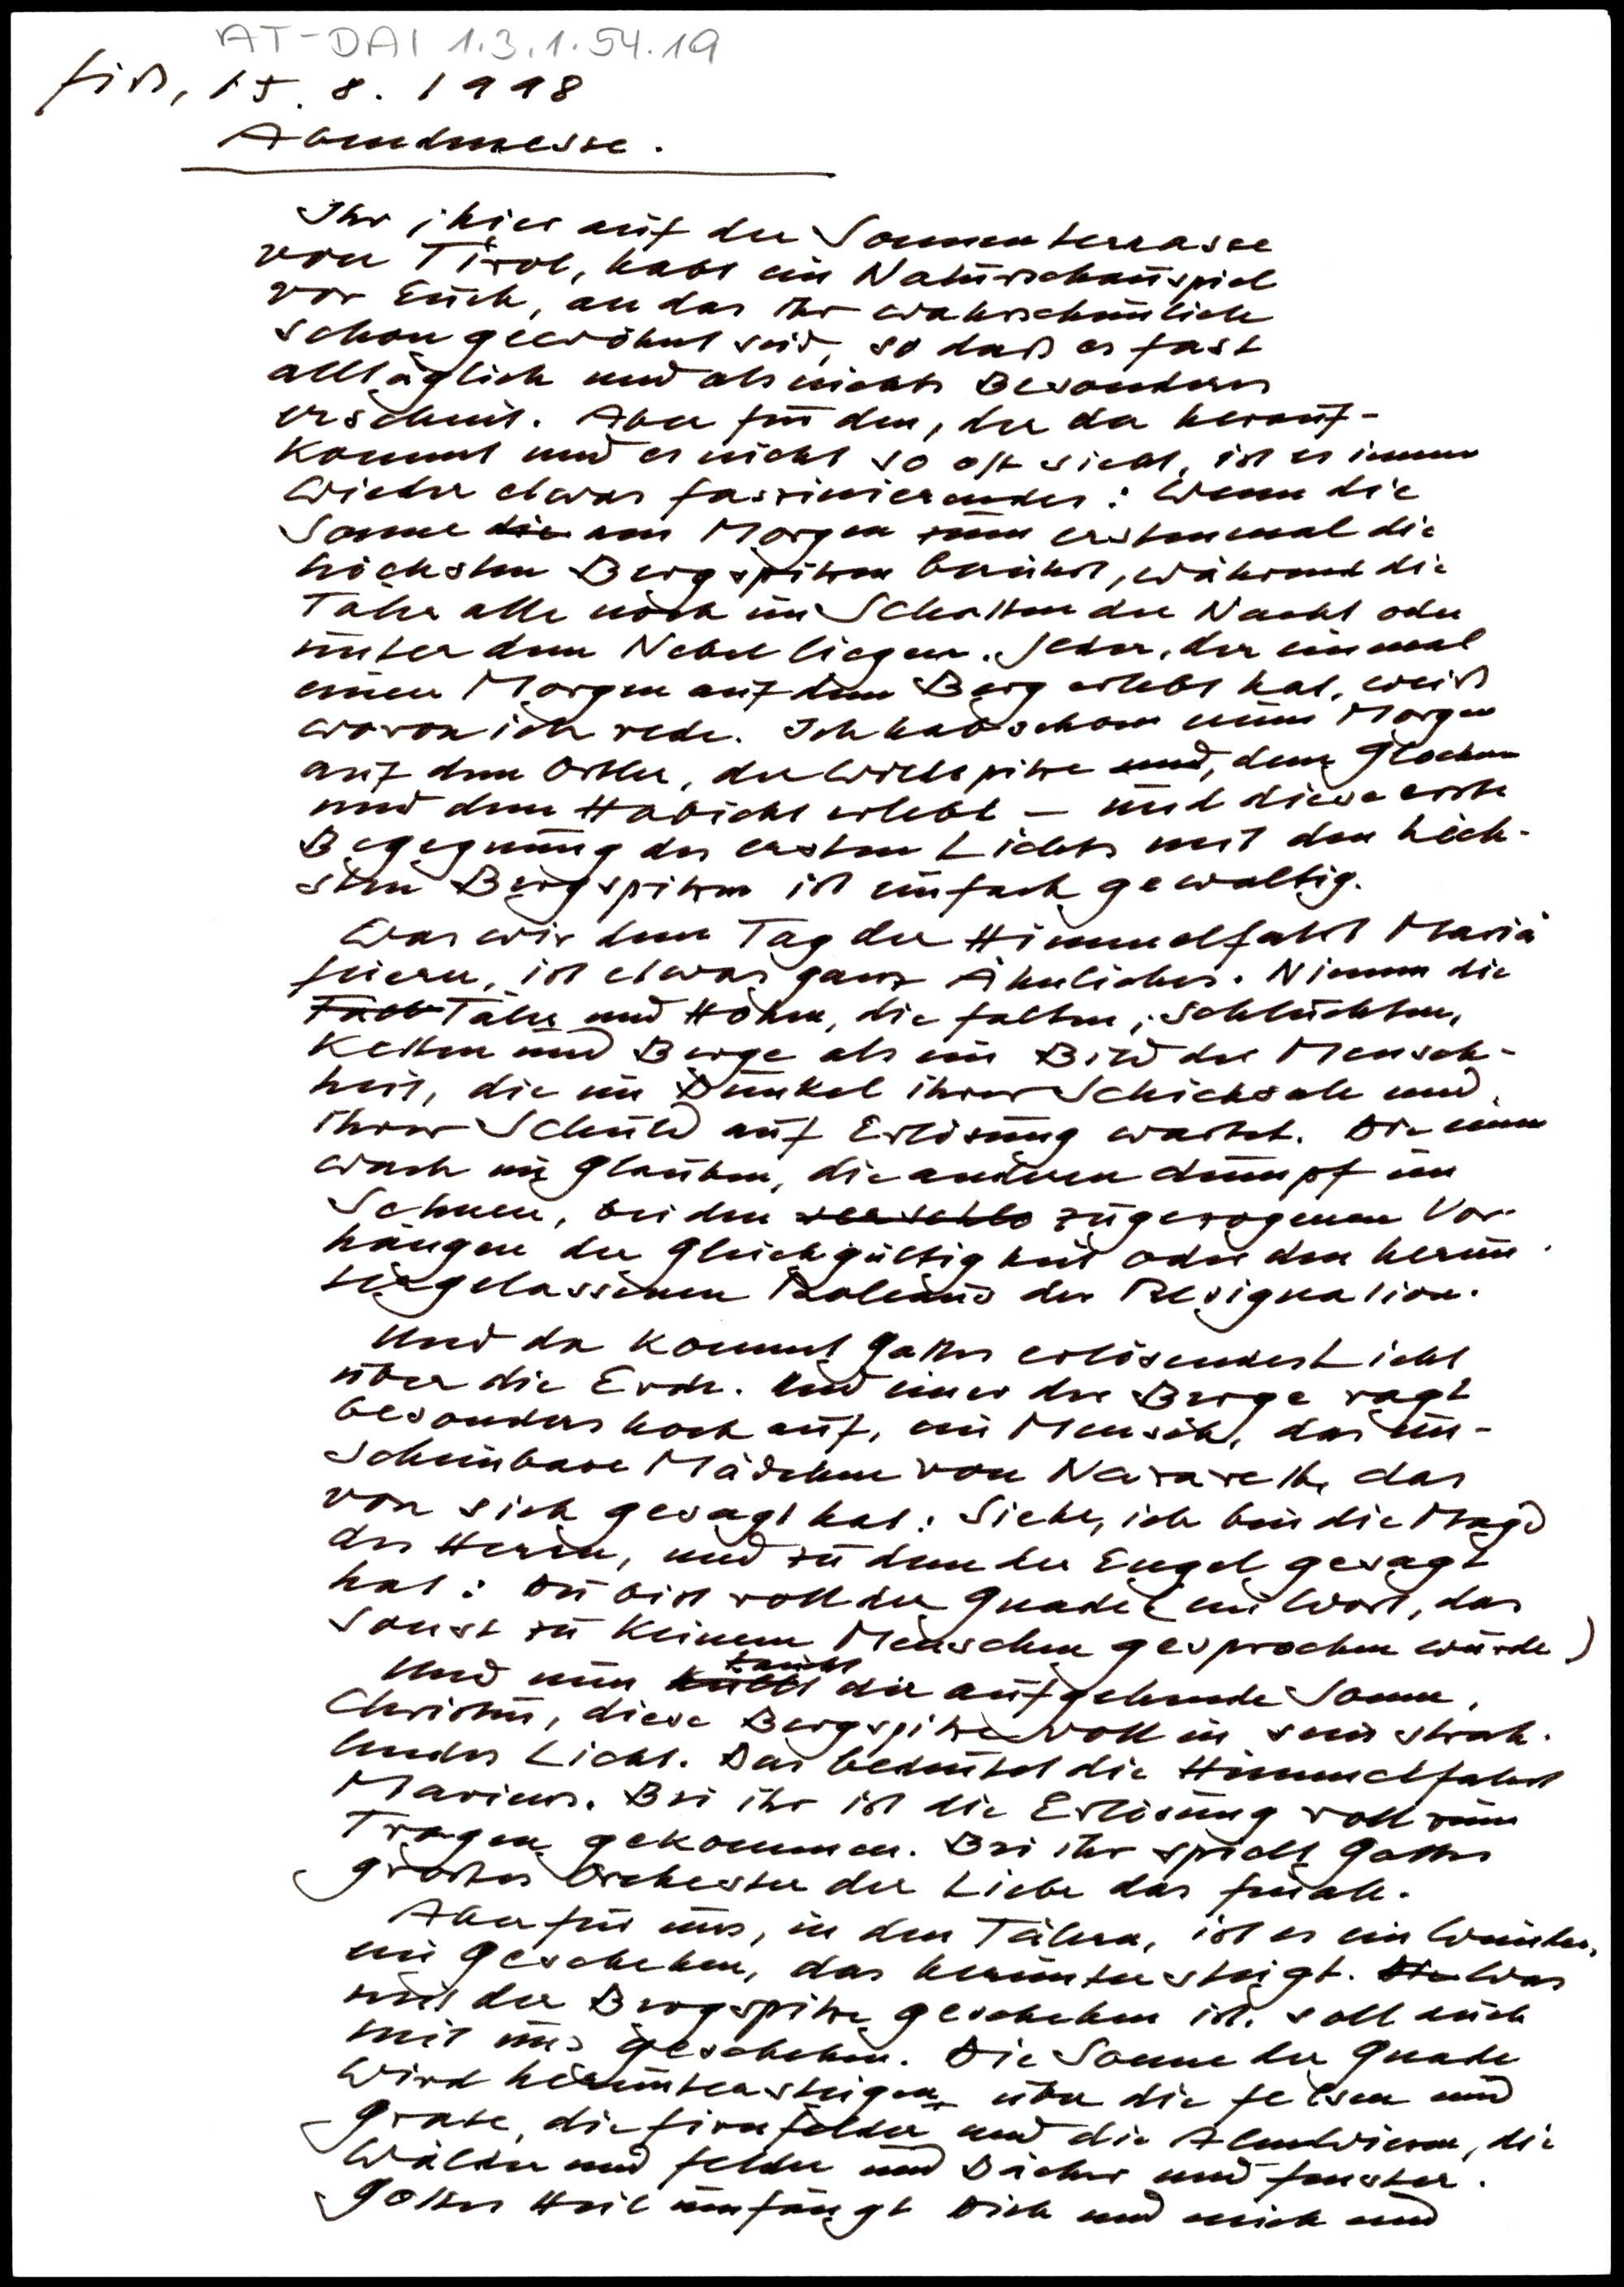 AT-DAI 1.3.1.54.19
Fiß, 15.8.1998
Abendmesse.
Ihr, hier auf der Sonnenterrasse
von Tirol, habt ein Naturschauspiel
vor Euch, an das Ihr wahrscheinlich
schon gewöhnt seid, so daß es fast
alltäglich und als nichts Besonderes
erscheint. Aber für den, der da herauf-
kommt und es nicht so oft sieht, ist es immer
wieder etwas faszinierendes: Wenn die
Sonne die am Morgen zum erstenmal die
höchsten Bergspitzen berührt, während die
Täler alle noch im Schatten der Nacht oder
unter dem Nebel liegen. Jeder, der einmal
einen Morgen auf dem Berg erlebt hat, weiß
wovon ich rede. Ich hab schon einen Morgen
auf dem Ortler, der Wildspitze und, dem Glockner
und dem Habicht erlebt – und diese erste
Begegnung des ersten Lichts mit den höch-
sten Bergspitzen ist einfach gewaltig.
Was wir dem Tag der Himmelfahrt Mariä
feiern, ist etwas ganz Ähnliches. Nimm die
Täler und Höhen, die Falten, Schluchten,
Ketten und Berge als ein Bild der Mensch-
heit, die im Dunkel ihrer Schicksale und
ihrer Schuld auf Erlösung wartet. Die einen
wach im Glauben, die anderen dumpf im
Sehnen, bei den zugezogenen Vor-
hängen der Gleichgültigkeit oder den herun-
tergelassenen Rouleaus der Resignation.
Und da kommt Gottes erlösendes Licht
über die Erde. Und einer der Berge ragt
besonders hoch auf, ein Mensch, das un-
scheinbare Mädchen von Nazareth, das
von sich gesagt hat: Siehe, ich bin die Magd
des Herrn, und zu dem der Engel gesagt
hat: Du bist voll der Gnade (ein Wort, das
sonst zu keinem Menschen gesprochen wurde)
Und nun taucht die aufgehende Sonne,
Christus, diese Bergspitze voll in sein strah-
lendes Licht. Das bedeutet die Himmelfahrt
Mariens. Bei ihr ist die Erlösung voll zum
Tragen gekommen. Bei ihr spielt Gottes
großes Orchester der Liebe das Finale.
Aber für uns, in den Tälern, ist es ein Wunder,
ein Geschehen, das heruntersteigt. Die Was
mit der Bergspitze geschehen ist, soll auch
mit uns geschehen. Die Sonne der Gnade
wird heruntersteigen, über die Felsen und
Grate, die Firnfelder und die Almwiesen, die
Wälder und Felder und Dächer und Fenster.
Gottes Heil umfängt Dich und mich und